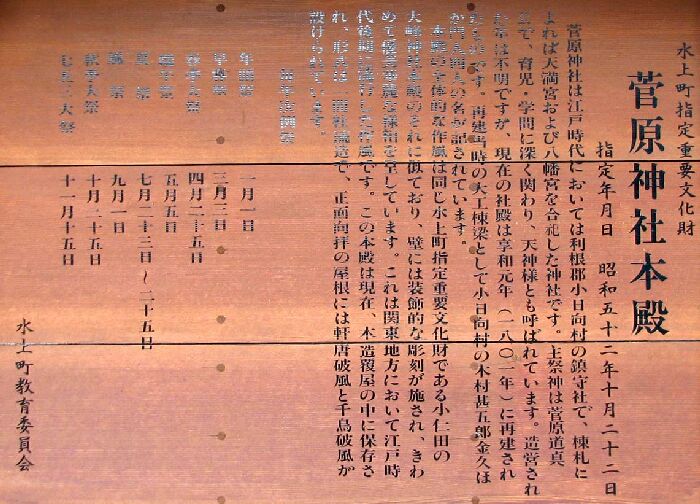 水上町指定重要文化財
菅原神社本殿
指定年月日 昭和五十二年十月二十二日
菅原神社は江戸時代においては利根郡小日向村の鎮守社で、棟札に
よれば天満宮および八幡宮を合祀した神社です。主祭神は菅原道真
公で、育児・学問に深く関わり、天神様とも呼ばれています。造営され
た年は不明ですが、現在の社殿は享和元年(一八〇一年)に再建され
たものです。再建当時の大工棟梁として小日向村の木村甚五郎金久ほ
か門人四人の名が記されています。
本殿の全体的な作風は同じ水上町指定重要文化財である小仁田の
大峰神社本殿のそれに似ており、壁には装飾的な彫刻が施され、きわ
めて優美華麗な様相を呈しています。これは関東地方において江戸時
代後期に流行した作風です。この本殿は現在、木造覆屋の中に保存さ
れ、形式は一間社流造で、正面向拝の屋根には軒唐破風と千鳥破風が
設けられています。
年 一月一日
三月三日
大祭 四月二十五日
五月五日
夏祭 七月二十三日~二十五日
祭 九月一日
秋季大祭 十月二十五日
七五三大祭 十一月十五日
水上町教育委員会